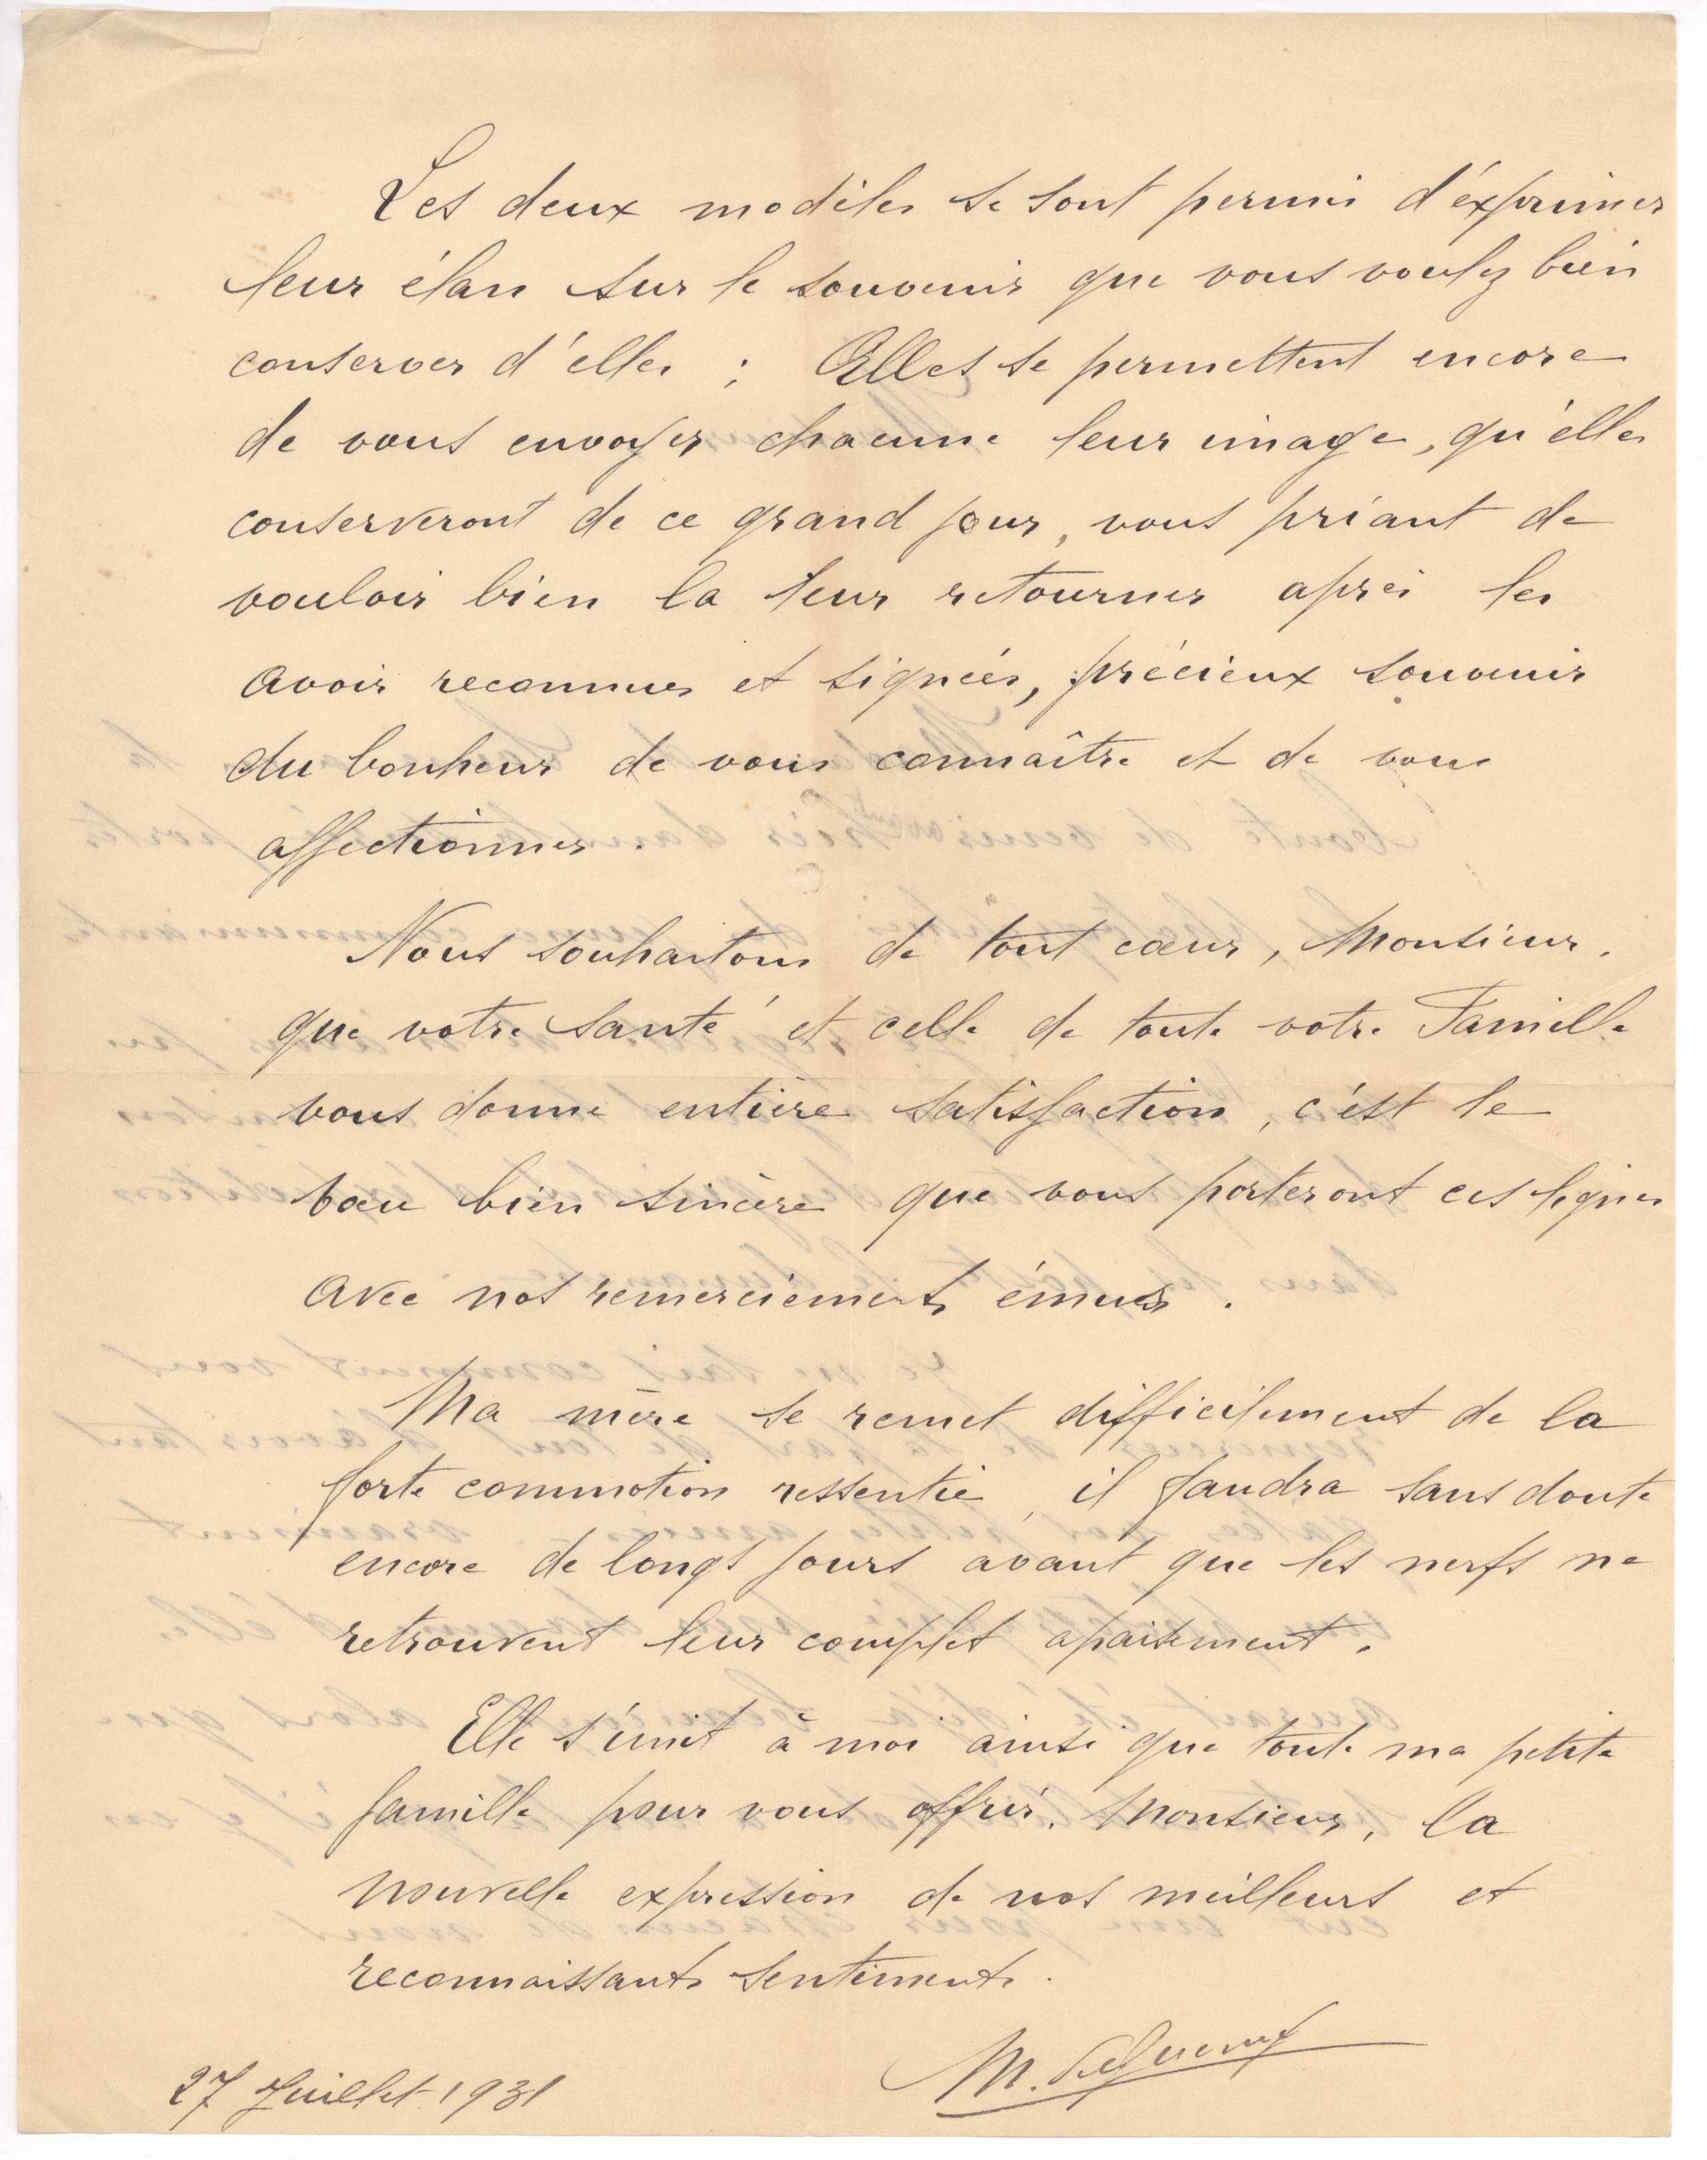 Les deux modèles se sont permis d'éxprimer
leur élan sur le souvenir que vous voulez bien
conserver d'elles ; Elles se permettent encore
de vous envoyer chacune leur image, qu'elles
conserveront de ce grand jour, vous priant de
vouloir bien la leur retourner après les
avoir reconnues et signées, précieux souvenir
du bonheur de vous connaître et de vous
affectionner.
Nous souhaitons de tout cœur, Monsieur,
que votre santé et celle de toute votre Famille
vous donne entière satisfaction, c'est le
vœu bien sincère que vous porteront ces lignes
avec nos remerciements émues.
Ma mère se remet difficilement de la
forte commotion ressentie, il faudra sans doute
encore de longs jours avant que les nerfs ne
retrouvent leur complet apaisement.
Elle s'unit à moi ainsi que toute ma petite
famille pour vous offrir, Monsieur, la
nouvelle expression de nos meilleurs et
reconnaissants sentiments.
M.
27 Juillet 1931